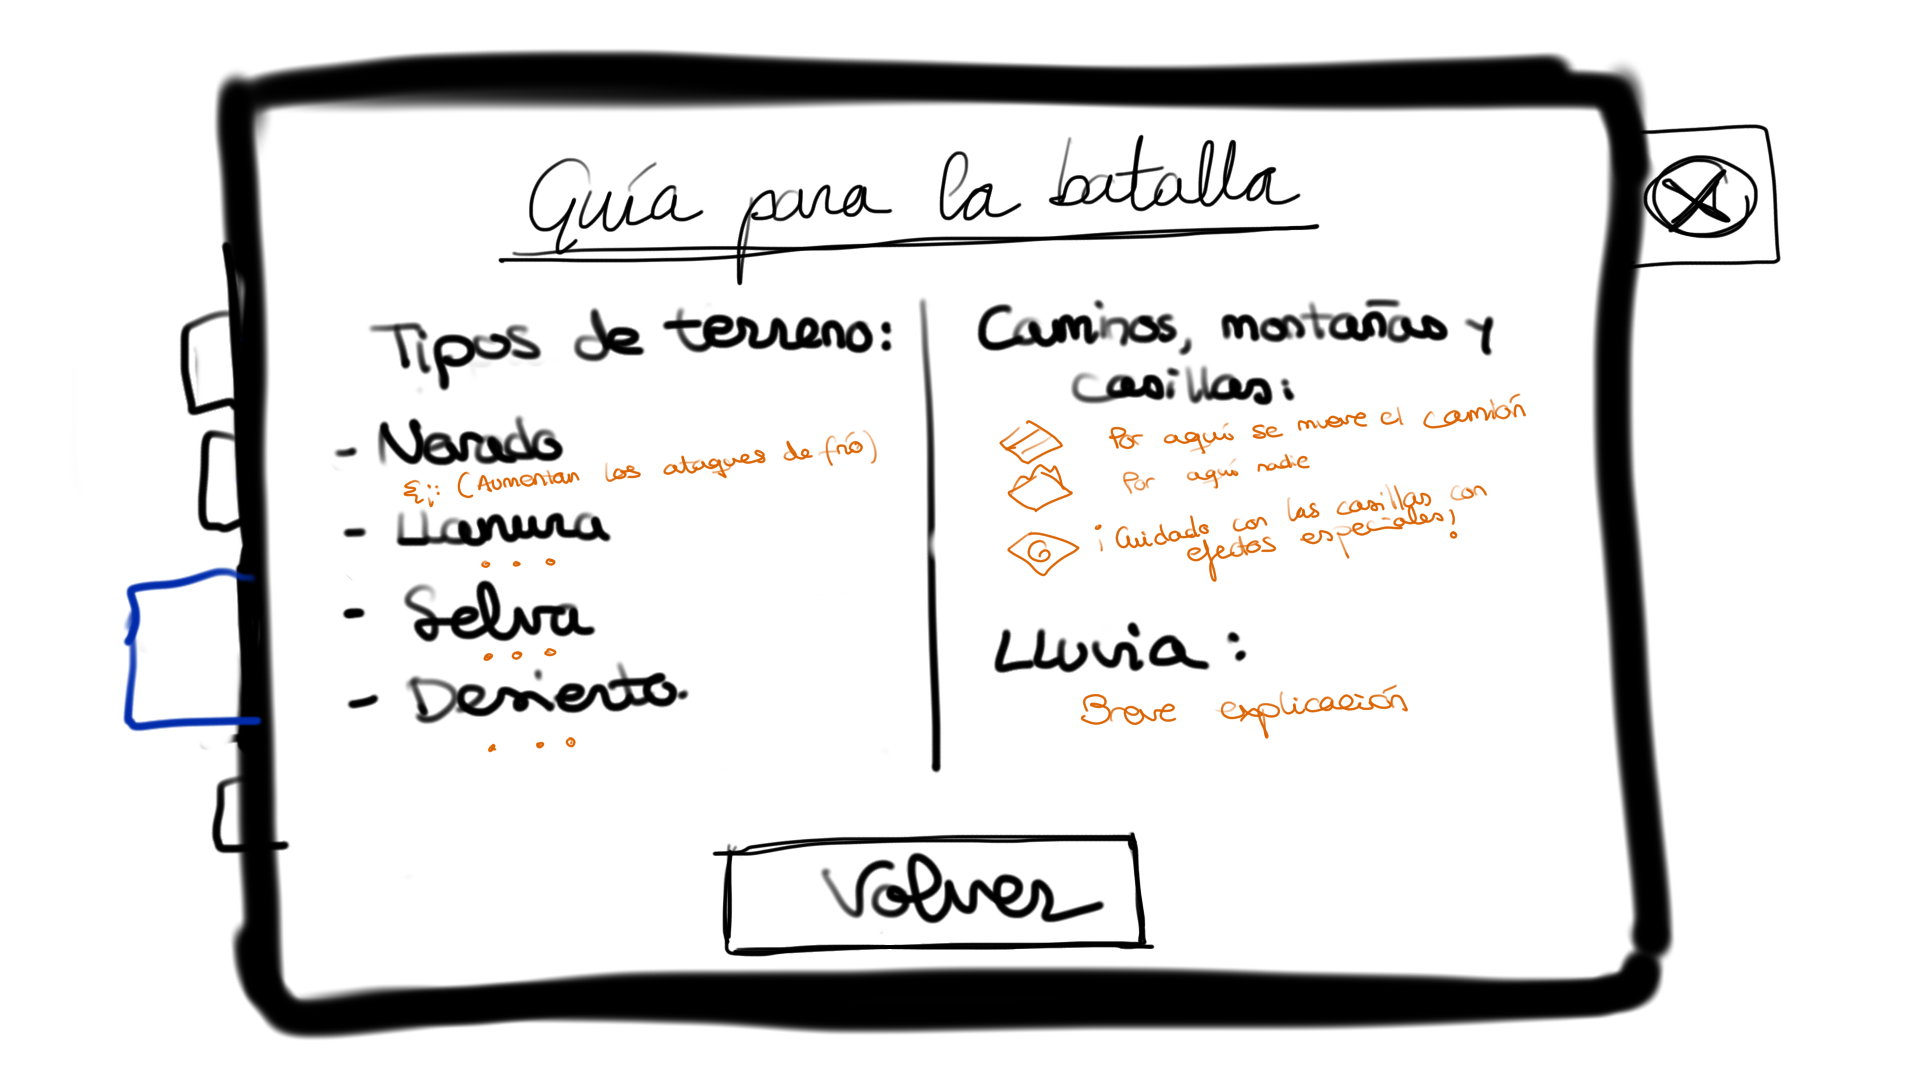 Guía para la batalla
Tipos de terreno:
- Nevado
(Aumentan los ataques de frío)
- Llanura
...
- Selva
...
- Desierto.
...
Caminos, montañas y
casillas:
Por aquí se mueve el camión
Por aquí nadie
¡Cuidado con las casillas con
efectos especiales!
Lluvia:
Breve explicación
Volver
X